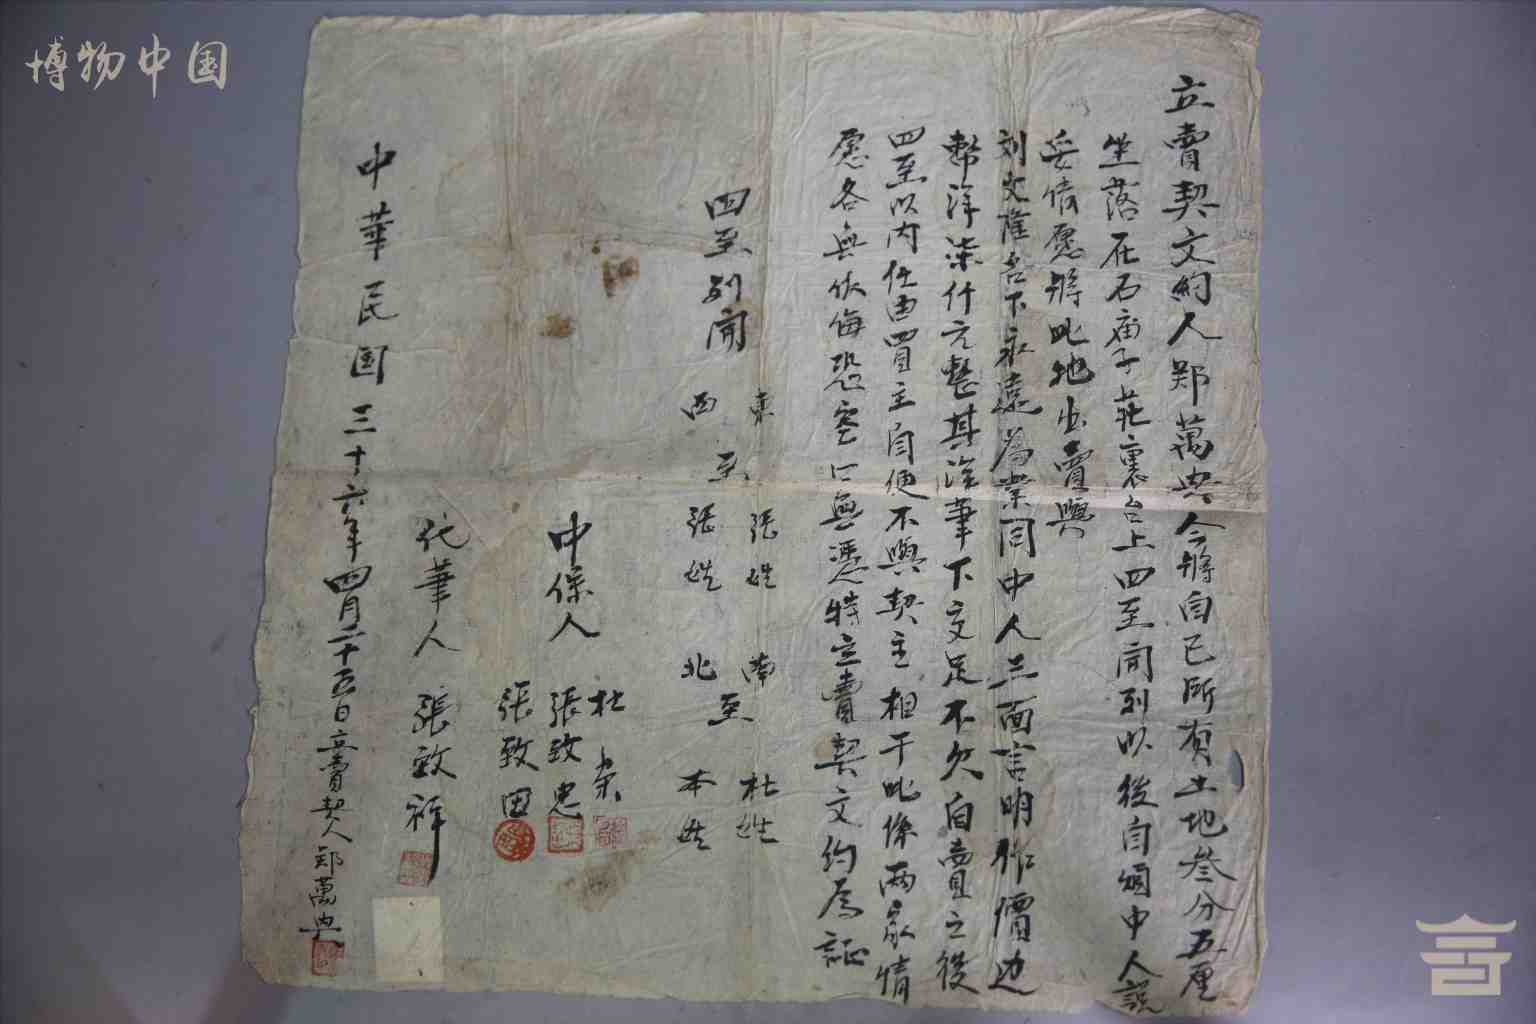 博物中国
立賣契文約人郑萬典今將自己所有土地叁分五厘
坐落在石庙子莊裏台上四至開列以後自煩中人說
妥情愿將此地出賣與
刘文 台下永遠為業同中人三面言明作價边
幣洋柒仟元整其洋筆下交足不欠自賣之後
四至以内任由買主自便不與契主相干此係两家情
愿各無伙侮恐空口無憑特立賣契文約為証
四至列開
東 西 至 張姓 張姓
南 北 至 杜姓 本姓
中保人 杜荣 張致忠 張致田
代筆人 張致祥
中華民国三十六年四月二十五日立賣契人郑萬典